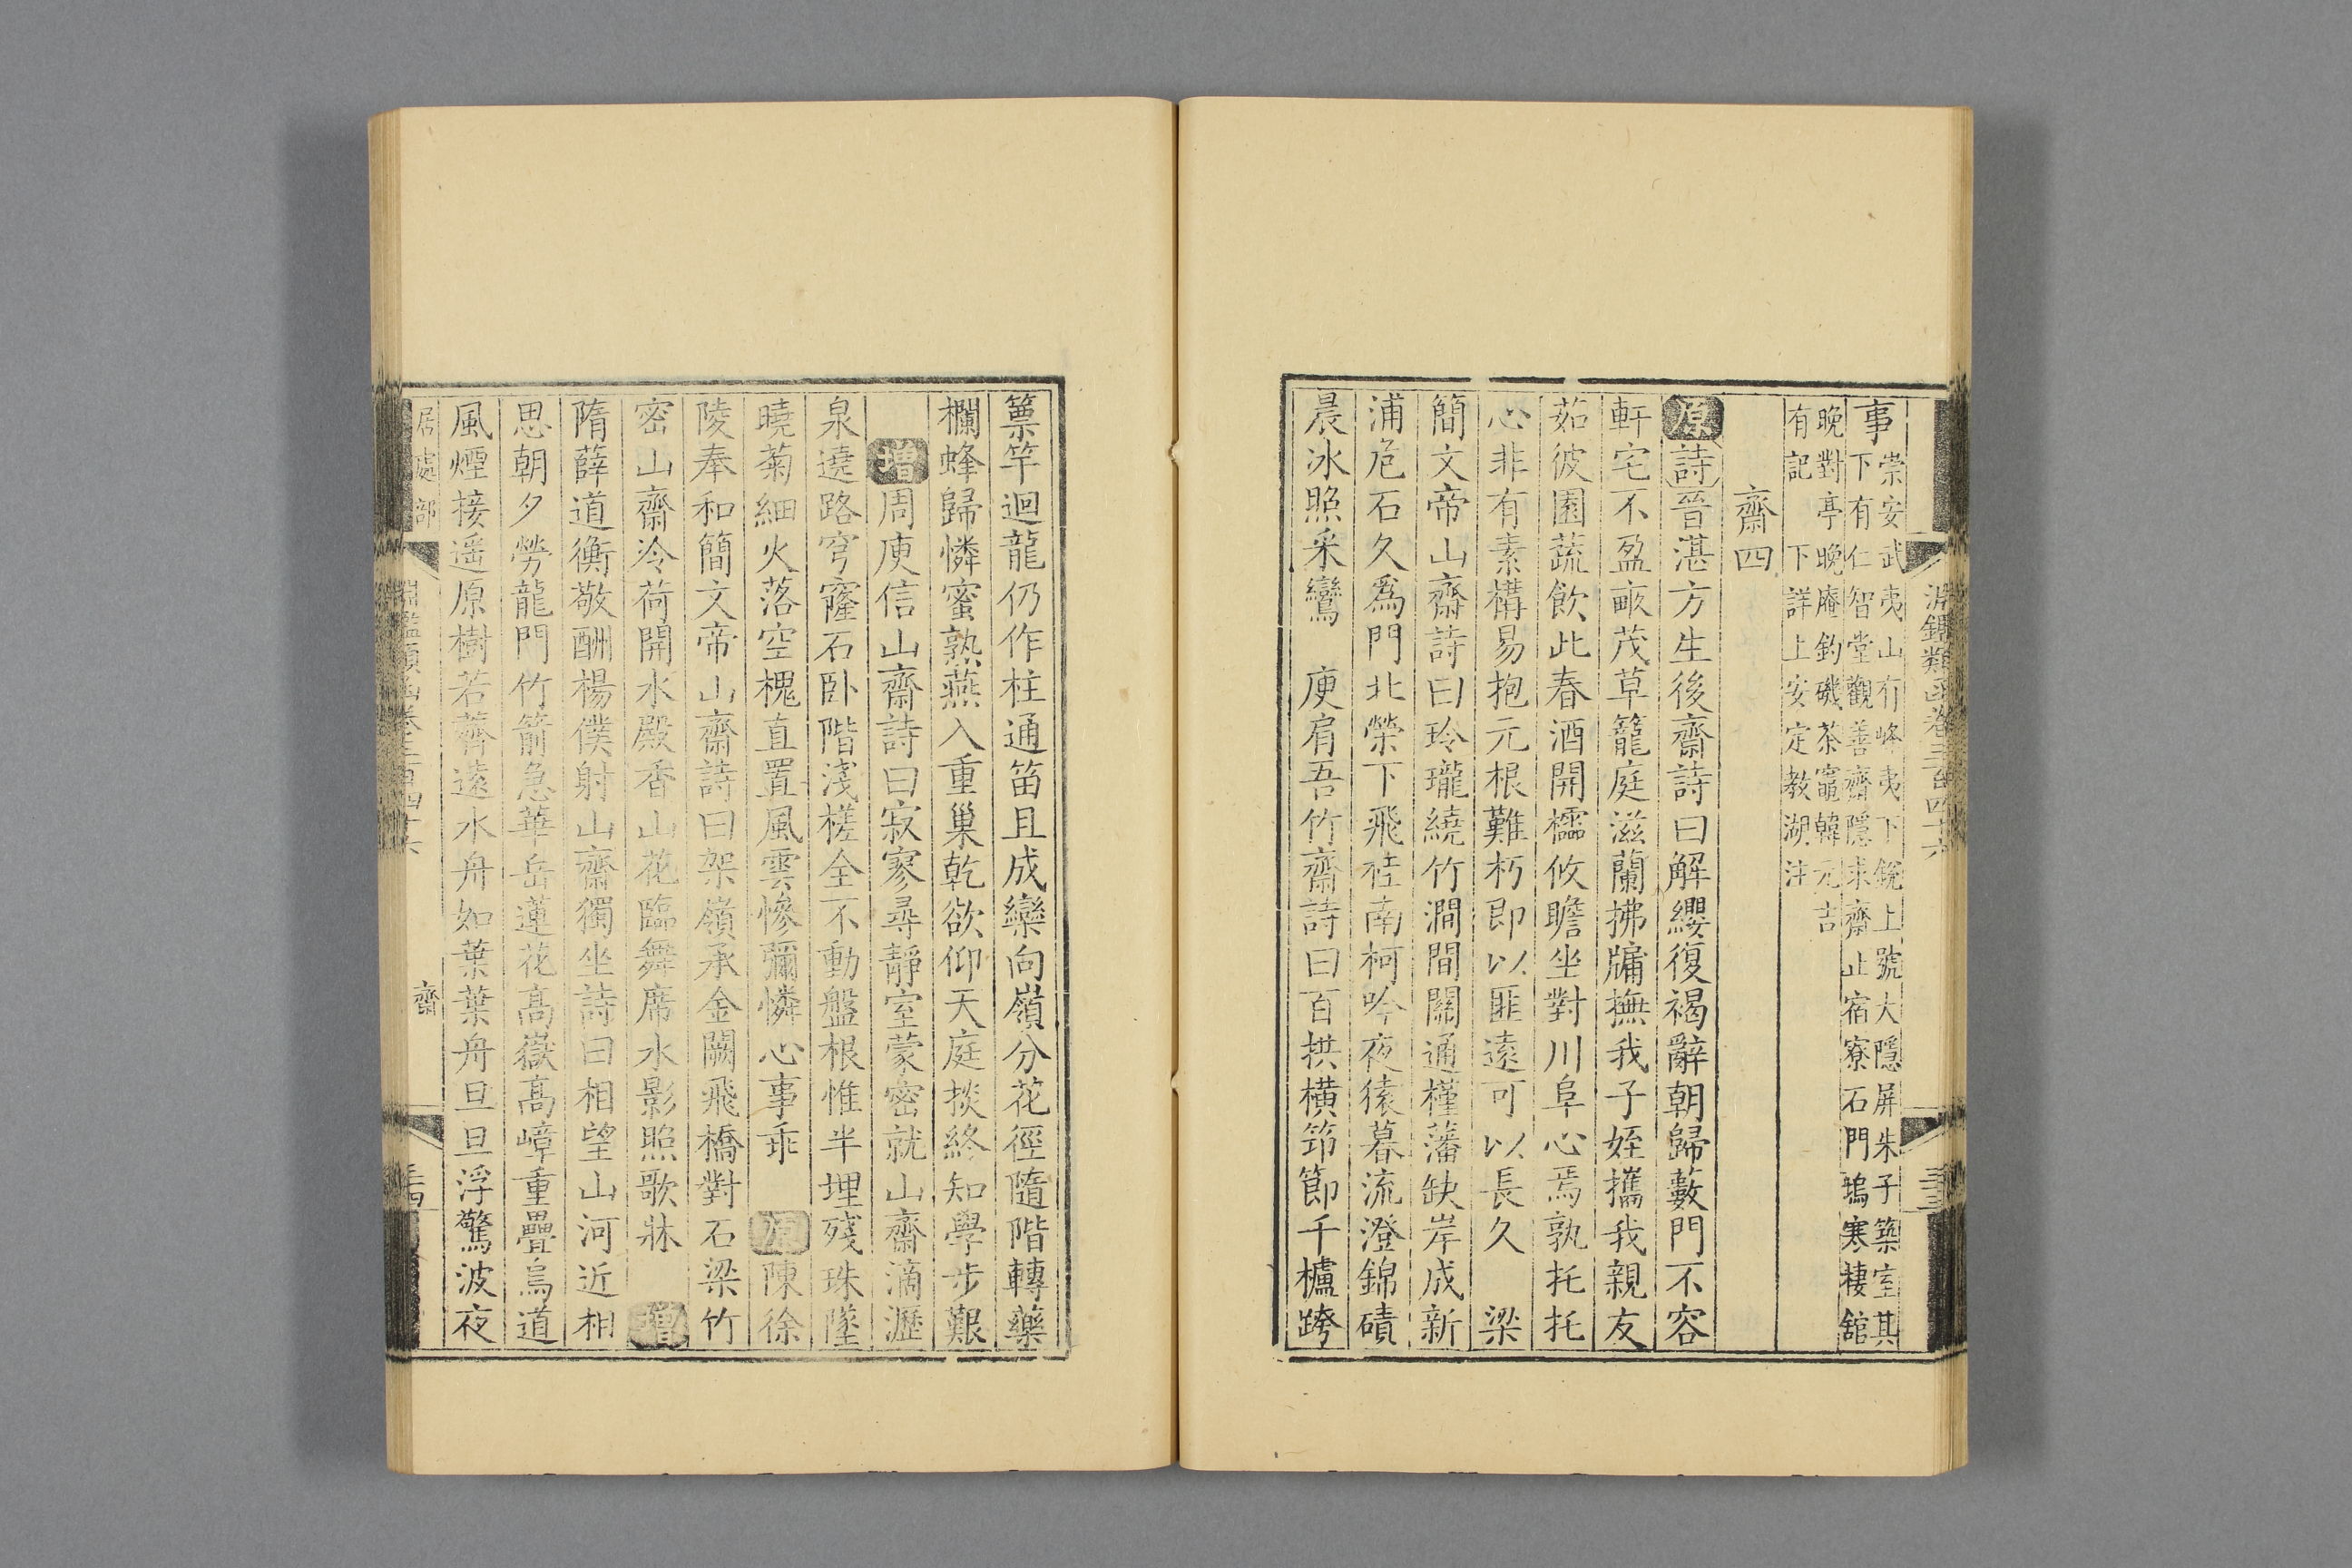 淵鑑類函卷三百四十六
三十三
事崇安武夷山有峰夷下銳上號大隱屏朱子築室其
下有仁智堂觀善齋隱求齋止宿寮石門塢寒棲館
晚對亭晚庵釣磯茶竈韓元吉
有記 下詳上安定教湖注
齋四
原詩晉湛方生後齋詩曰解纓復褐辭朝歸藪門不容
軒宅不盈畝茂草籠庭滋蘭拂牖撫我子姪攜我親友
茹彼園蔬飲此春酒開櫺攸瞻坐對川阜心焉孰托托
心非有素構易抱元根難朽即以匪遠可以長久 梁
簡文帝山齋詩曰玲瓏繞竹澗間關通槿藩缺岸成新
浦危石久爲門北榮下飛桂南柯吟夜猿暮流澄錦磧
晨冰照采鸞 庾肩吾竹齋詩曰百拱橫筇節千櫨跨
篥竿迴龍仍作柱通笛且成欒向嶺分花徑隨階轉藥
欄蜂歸憐蜜熟燕入重巢乾欲仰天庭掞終知學步艱
增周庾信山齋詩曰寂寥尋靜室蒙密就山齋滴瀝
泉遶路穹窿石卧階淺槎全不動盤根惟半埋殘珠墜
曉菊細火落空槐直置風雲慘彌憐心事乖 原陳徐
陵奉和簡文帝山齋詩曰架嶺承金闕飛橋對石梁竹
密山齋冷荷開水殿香山花臨舞席水影照歌牀 增
隋薛道衡敬酬楊僕射山齋獨坐詩曰相望山河近相
思朝夕勞龍門竹箭急華岳蓮花高嶽高嶂重疊鳥道
風煙接遥原樹若薺遠水舟如葉葉舟旦旦浮驚波夜
居處部
淵鑑類函卷三百四十六
齋
三十四